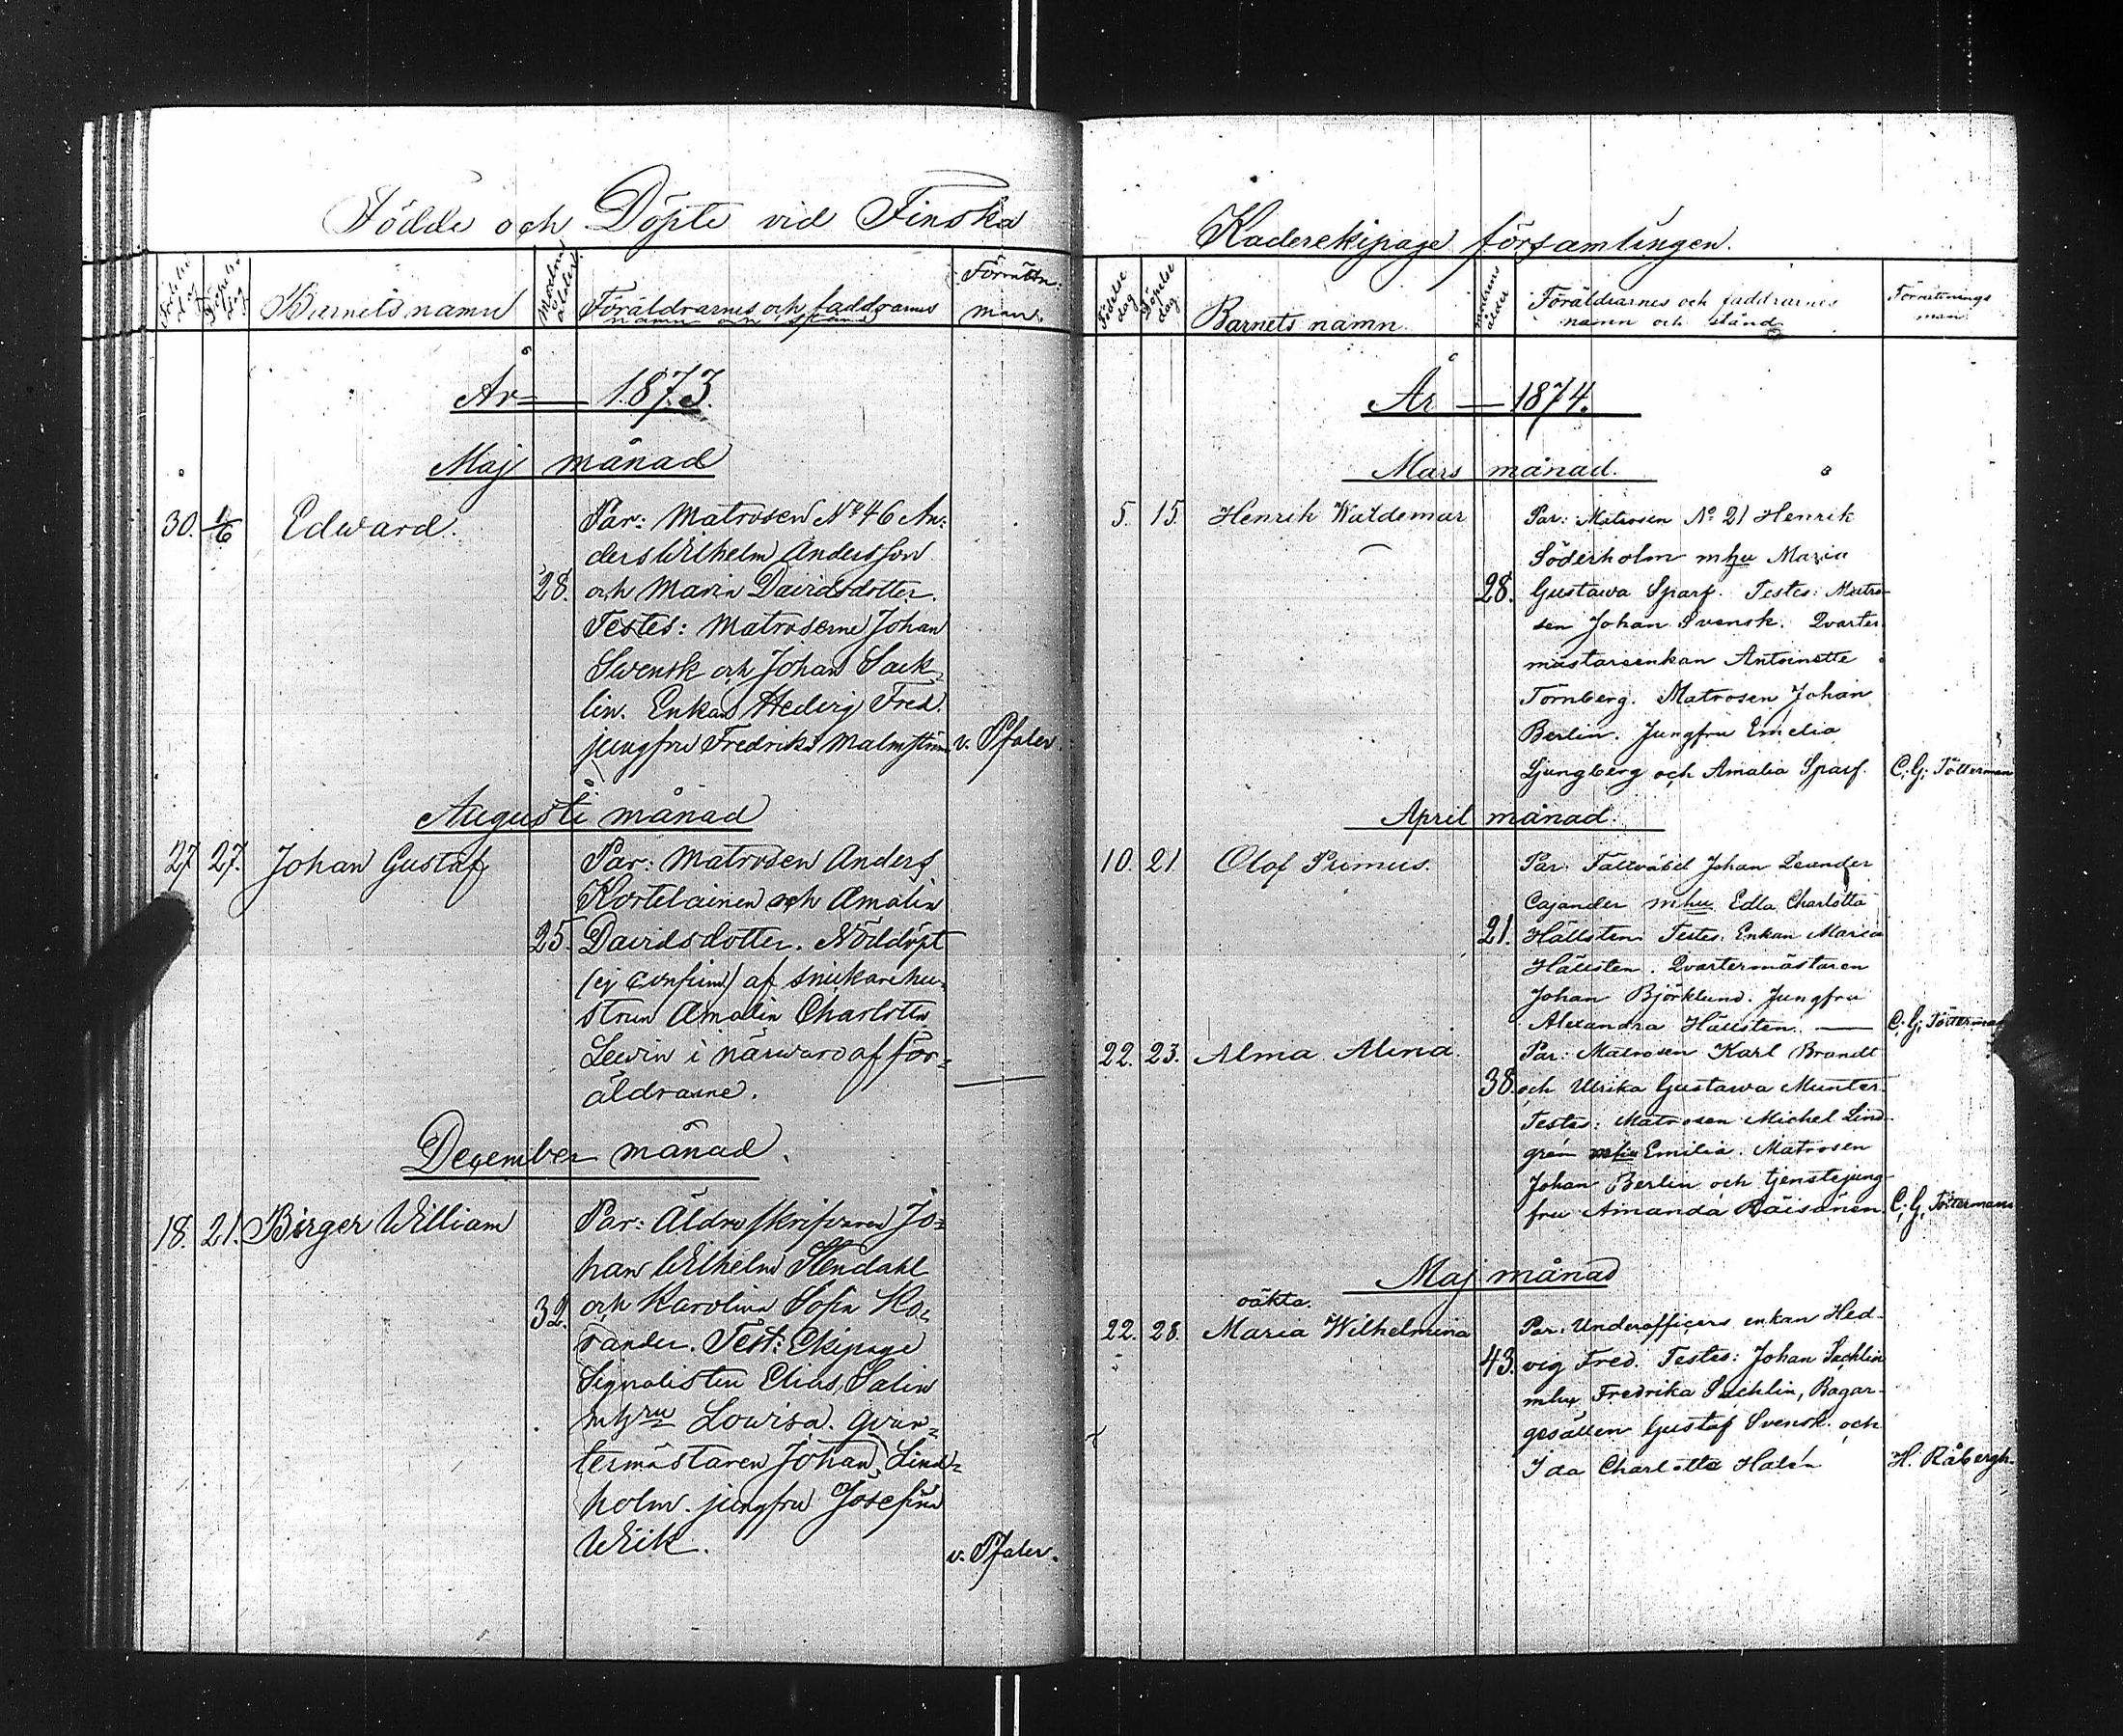 Födde och Döpte vid Finska
Födelse dag
Döpelse dag
Barnets namn
Modrens ålder
Föräldrarnes och faddrarnes
namn och stånd
Förrättn:
man.
År — 1873.
Maj månad
30. 1/6 Edward. Par: Matrosen No 46 An:
ders Wilhelm Andersson
28. och Maria Davidsdotter.
Testes: Matroserne Johan
Swensk och Johan Sack-
lin. Enkan Hedvig Fred.
jungfru Fredrika Malmström v. Pfaler.
Augusti månad
27. 27. Johan Gustaf Par: Matrosen Anders
Kortelainen och Amalia
25. Davidsdotter. Nöddöpt
(ej confirm) af snickarehu-
strun Amalia Charlotta
Lewin i närwaro af för-
äldrarne. —
December månad.
18. 21. Birger William Par: Äldre skrifvaren Jo-
han Wilhelm Stendahl
32. och Karolina Sofia Ko-
rander. Test: Ekipage
Signalisten Elias Salin
mhru Lowisa. Qvar-
termästaren Johan Lind-
holm. jungfru Josefina
Wiik. v. Pfaler.
Kaderekipage församlingen.
Födelse dag
Döpelse dag
Barnets namn.
modrens ålder
Föräldrarnes och faddrarnes
namn och stånd
Förrättnings
man.
År — 1874.
Mars månad.
5. 15. Henrik Waldemar Par: Matrosen No 21 Henrik
Söderholm mhu Maria
28. Gustawa Sparf. Testes: Matro-
sen Johan Svensk. Qvarter
mästareenkan Antoinette
Törnberg. Matrosen Johan
Berlin. Jungfru Emelia
Ljungberg och Amalia Sparf. C. G. Tötterman
April månad.
10. 21 Olof Primus. Par: Fältväbel Johan Leander
Cajander mhu Edla Charlotta
21. Hällsten. Testes: Enkan Maria
Hällsten. Qvartermästaren
Johan Björklund. Jungfru
Alexandra Hällsten. — C. G. Tötterman
22. 23. Alma Alina. Par: Matrosen Karl Brandt
38. och Ulrika Gustawa Munter.
Testes: Matrosen Michel Lind-
grén mhu Emilia. Matrosen
Johan Berlin och tjenstejung-
fru Amanda Räisänen. C. G. Tötterman
Maj månad
oäkta.
22. 28. Maria Wilhelmina Par: Underofficers enkan Hed-
43. vig Fred. Testes: Johan Sacklin
mhu Fredrika Sacklin, Bagar-
gesällen Gustaf Svensk och
Ida Charlotta Halén H. Råbergh.